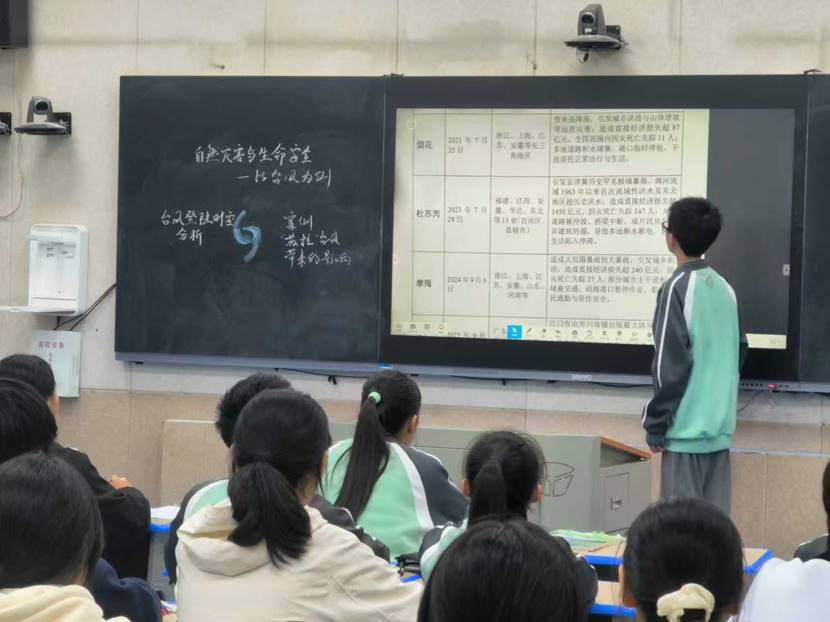 自然灾害与生命安全
—以台风为例
台风登陆时空
分析
案例
台风
带来的影响
烟花
2021 年 7 月
25 日
浙江、上海、江
苏、安徽等长三
角地区
带来强降雨，引发城市洪涝与山体滑坡
等地质灾害；造成直接经济损失超 87
亿元，全国范围内因灾死亡失踪 11 人；
多地道路积水堵塞，港口临时停航，干
扰居民正常出行与生活。
杜苏芮
2023 年 7 月
28 日
福建、江西、安
徽、华北、东北
等 13 省(自治区、
直辖市)
引发京津冀历史罕见极端暴雨，海河流
域 1963 年以来首次流域性洪水及东北
地区超历史洪水；造成直接经济损失超
1450 亿元，因灾死亡失踪 147 人；
道路被冲毁、桥梁中断，成片民房
共建筑坍塌，导致多地断水断电，
生活陷入停滞。
摩羯
2024 年 9 月 6
日
浙江、上海、江
苏、安徽、山东、
河南等
造成大范围暴雨到大暴雨，引发城乡积
涝；造成直接经济损失超 240 亿元，因
灾死亡失踪 27 人；部分城市主干道
堵塞交通；沿海港口暂停作业，
民通勤与居住安全。
2025 年 9 月
广东